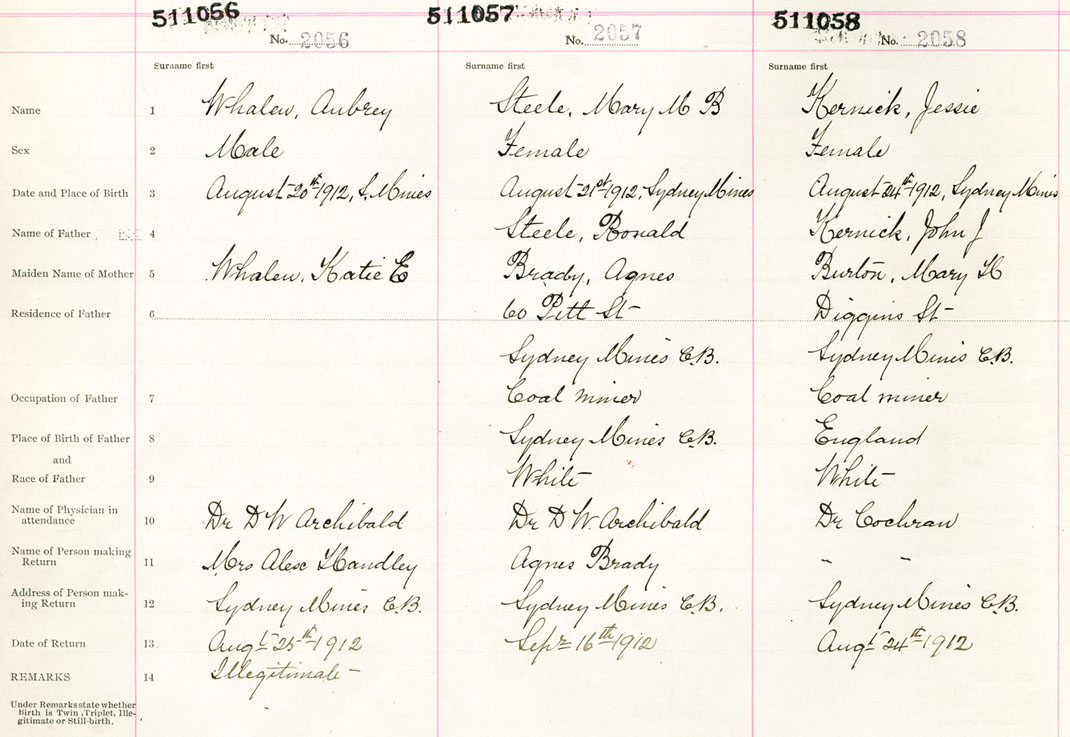 511056 511057 511058
No. 2056 No. 2057 No. 2058
Surname first Surname first Surname first
Name 1 Whalen, Aubrey Steele, Mary M B Kernick, Jessie
Sex 2 Male Female Female
Date and Place of Birth 3 August 20th 1912, S. Mines August 21st 1912, Sydney Mines August 24th 1912, Sydney Mines
Name of Father 4 Steele, Ronald Kernick, John J
Maiden Name of Mother 5 Whalen, Katie E Brady, Agnes Burton, Mary H
Residence of Father 6 60 Pitt St Diggins St
Sydney Mines C.B. Sydney Mines C.B.
Occupation of Father 7 Coal miner Coal miner
Place of Birth of Father 8 Sydney Mines C.B. England
and
Race of Father 9 White White
Name of Physician in
attendance 10 Dr D W Archibald Dr D W. Archibald Dr Cochran
Name of Person making
Return 11 Mrs Alex Handley Agnes Brady " "
Address of Person mak-
ing Return 12 Sydney Mines C.B. Sydney Mines C.B. Sydney Mines C.B.
Date of Return 13 Augt 25th 1912 Sepr 16th 1912 Augt 24th 1912
REMARKS 14 Illegitimate
Under Remarks state whether
Birth is Twin, Triplet, Ille-
gitimate or Still-birth.